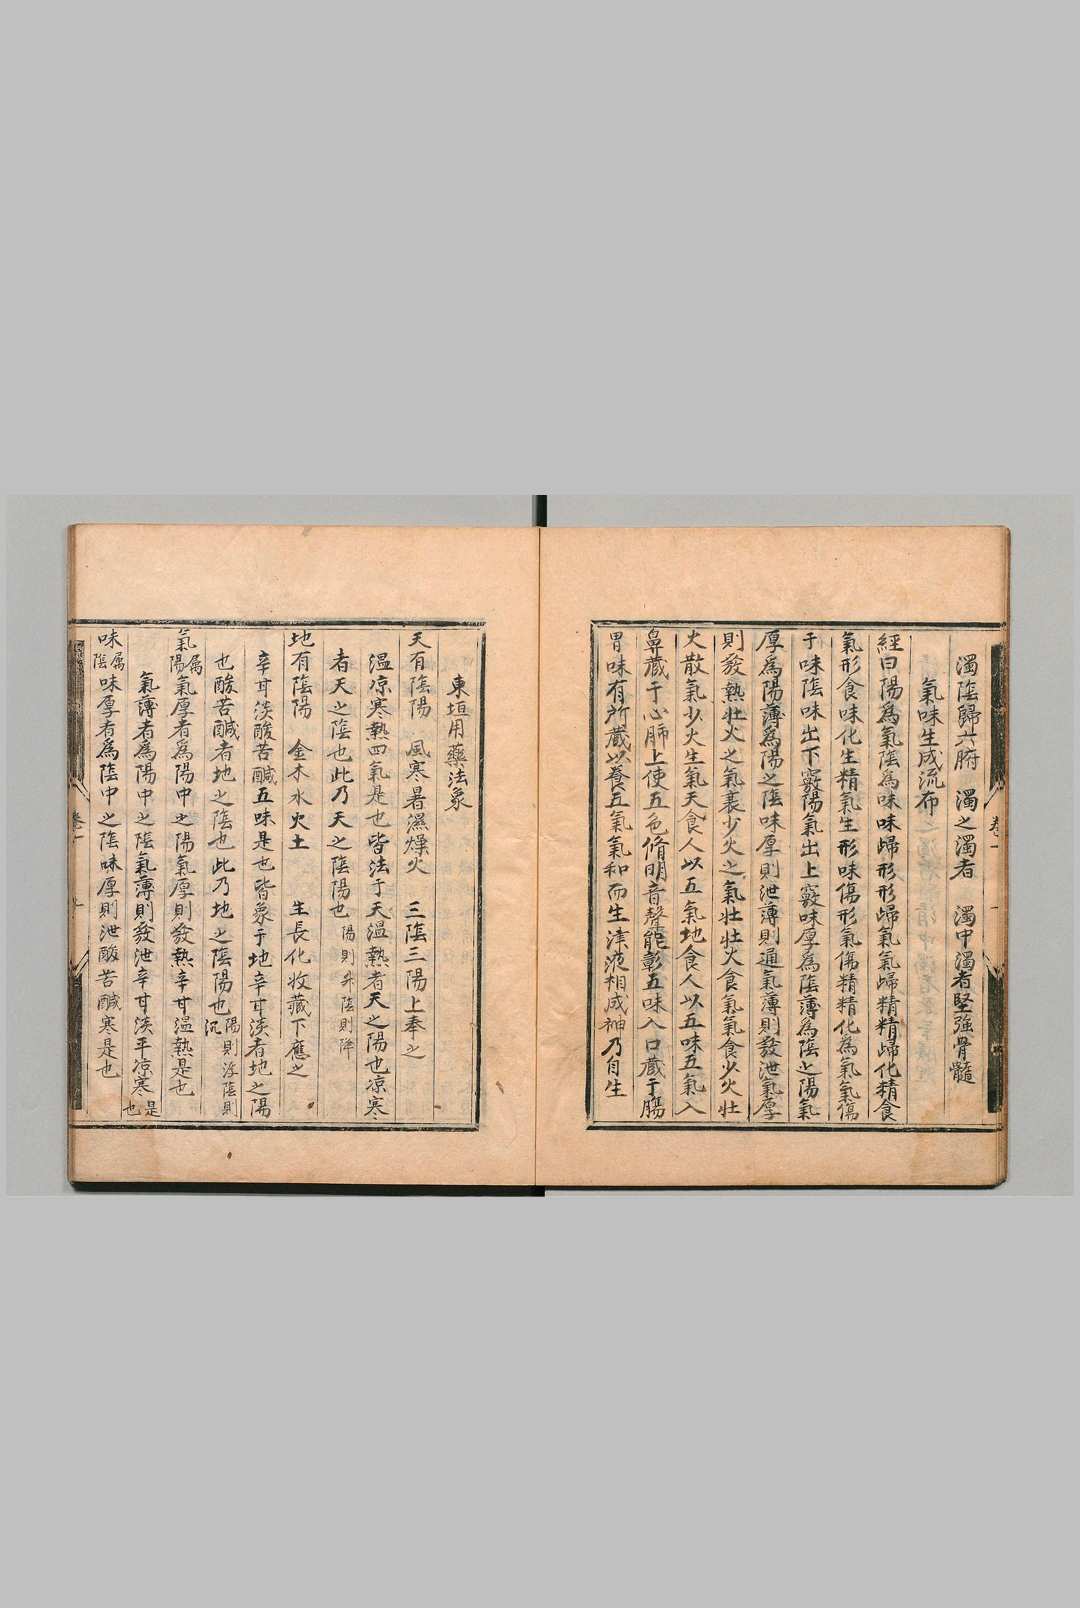 濁陰歸六腑　濁之濁者　濁中濁者堅強骨髓
氣味生成流布
經曰陽為氣陰為味味歸形形歸氣氣歸精精歸化精食
氣形食味化生精氣生形味傷形氣傷精精化為氣氣傷
于味陰味出下竅陽氣出上竅味厚為陰薄為陰之陽氣
厚為陽薄為陽之陰味厚則泄薄則通氣薄則發泄氣厚
則發熱壯火之氣衰少火之氣壯壯火食氣氣食少火壯
火散氣少火生氣天食人以五氣地食人以五味五氣入
鼻藏于心肺上使五色脩明音聲能彰五味入口藏于腸
胃味有所藏以養五氣氣和而生津液相成神乃自生
卷一
東垣用藥法象
天有陰陽　風寒暑濕燥火　三陰三陽上奉之
溫凉寒熱四氣是也皆法于天溫熱者天之陽也凉寒
者天之陰也此乃天之陰陽也陽則升陰則降
地有陰陽　金木水火土　生長化收藏下應之
辛甘淡酸苦鹹五味是也皆象于地辛甘淡者地之陽
也酸苦鹹者地之陰也此乃地之陰陽也陽則浮陰則沉
氣屬陽氣厚者為陽中之陽氣厚則發熱辛甘溫熱是也
氣薄者為陽中之陰氣薄則發泄辛甘淡平凉寒是也
味屬陰味厚者為陰中之陰味厚則泄酸苦鹹寒是也
卷一